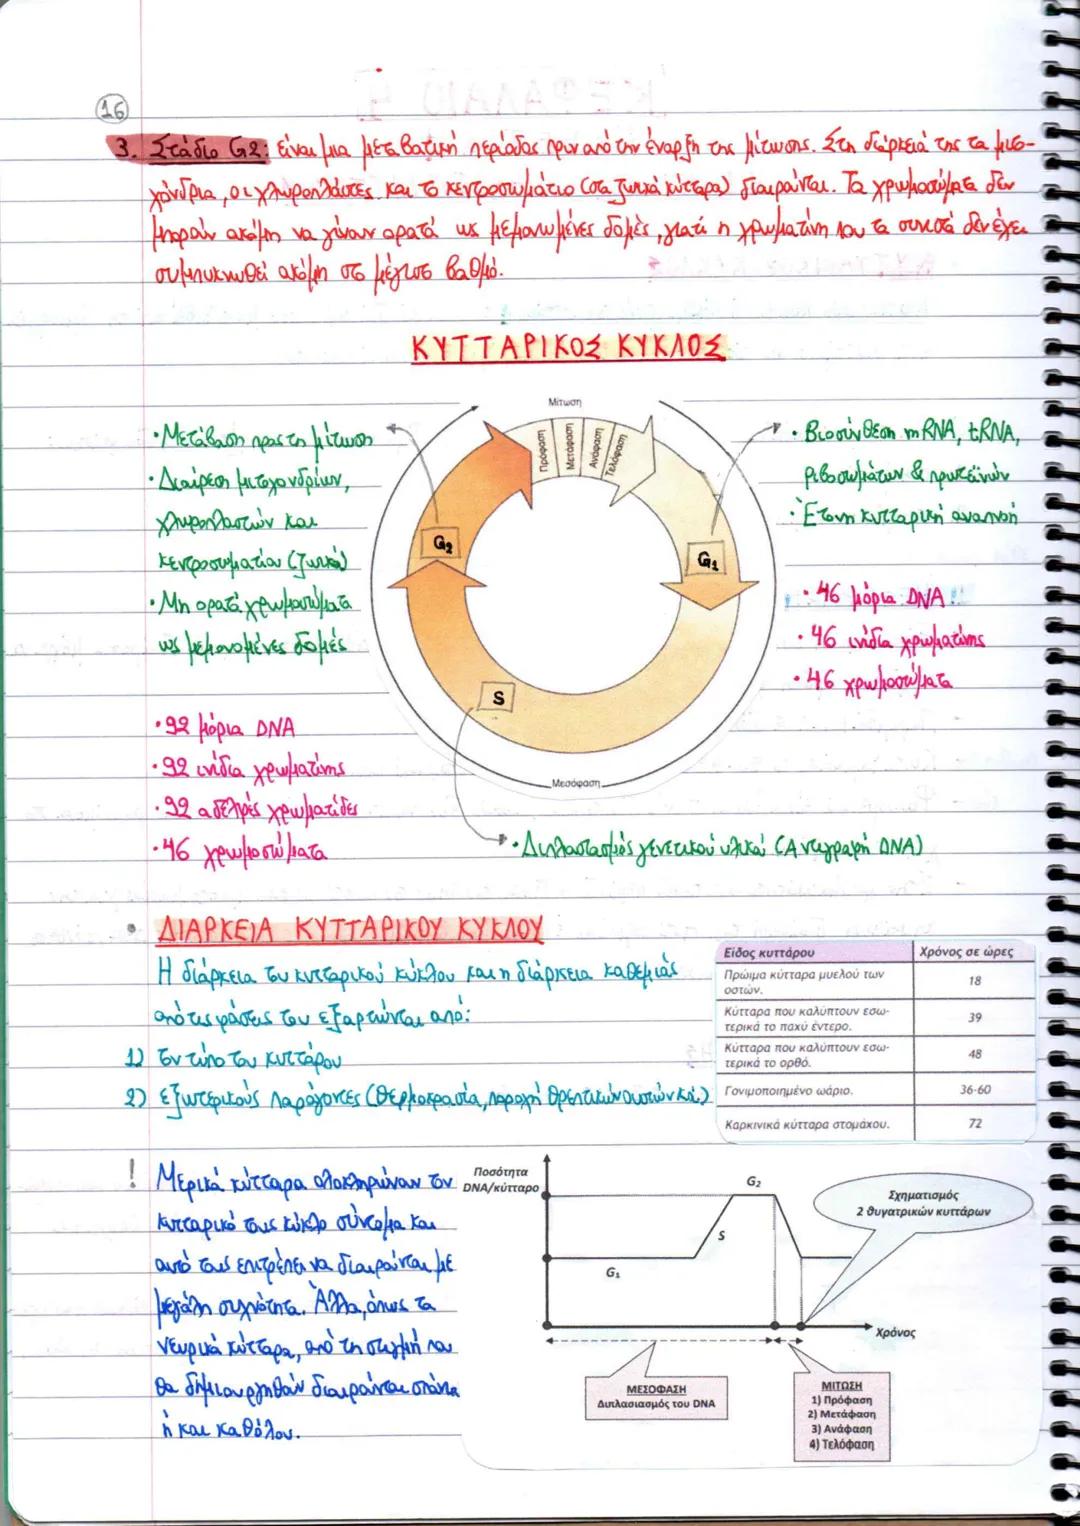 16
3. Στάδιο G2: Είναι μια μεταβατική περίοδος πριν από την έναρξη της μίτωσης. Στη διάρκειά της τα μιτο-
χόνδρια, οι χλωροπλάστες και το κεντροσωμάτιο (στα ζωικά κύτταρα) διαιρούνται. Τα χρωμοσώματα δεν
μπορούν ακόμη να γίνουν ορατά ως μεμονωμένες δομές, γιατί η χρωματίνη που τα συνιστά δεν έχει
συμπυκνωθεί ακόμη στο μέγιστο βαθμό.
ΚΥΤΤΑΡΙΚΟΣ ΚΥΚΛΟΣ
Μίτωση
Πρόφαση
Μετάφαση
Ανάφαση
Τελόφαση
G2
G1
S
Μεσόφαση
• Μετάβαση προς τη μίτωση
• Διαίρεση μιτοχονδρίων,
χλωροπλαστών και
κεντροσωματίου (ζωικά)
• Μη ορατά χρωμοσώματα
ως μεμονομένες δομές
• Βιοσύνθεση mRNA, tRNA,
ριβοσωμάτων & πρωτεϊνών
• Έτονη κυτταρική αναπνοή
• 46 μόρια DNA
• 46 ινίδια χρωματίνης
• 46 χρωμοσώματα
• 92 μόρια DNA
• 92 ινίδια χρωματίνης
• 92 αδελφές χρωματίδες
• 46 χρωμοσώματα
• Διπλασιασμός γενετικού υλικού (Αντιγραφή DNA)
• ΔΙΑΡΚΕΙΑ ΚΥΤΤΑΡΙΚΟΥ ΚΥΚΛΟΥ
Η διάρκεια του κυτταρικού κύκλου και η διάρκεια καθεμιάς
από τις φάσεις του εξαρτώνται από:
1) τον τύπο του κυττάρου
2) εξωτερικούς παράγοντες (θερμοκρασία, παροχή θρεπτικών ουσιών κά)
Είδος κυττάρου Χρόνος σε ώρες
Πρώιμα κύτταρα μυελού των
οστών. 18
Κύτταρα που καλύπτουν εσω-
τερικά το παχύ έντερο. 39
Κύτταρα που καλύπτουν εσω-
τερικά το ορθό. 48
Γονιμοποιημένο ωάριο. 36-60
Καρκινικά κύτταρα στομάχου. 72
! Μερικά κύτταρα ολοκληρώνουν τον
κυτταρικό τους κύκλο σύντομα και
αυτό τους επιτρέπει να διαιρούνται με
μεγάλη συχνότητα. Άλλα, όπως τα
νευρικά κύτταρα, από τη στιγμή που
θα δημιουργηθούν διαιρούνται σπάνια
ή και καθόλου.
Ποσότητα
DNA/κύτταρο
G1
S
G2
Σχηματισμός
2 θυγατρικών κυττάρων
Χρόνος
ΜΕΣΟΦΑΣΗ
Διπλασιασμός του DNA
ΜΙΤΩΣΗ
1) Πρόφαση
2) Μετάφαση
3) Ανάφαση
4) Τελόφαση